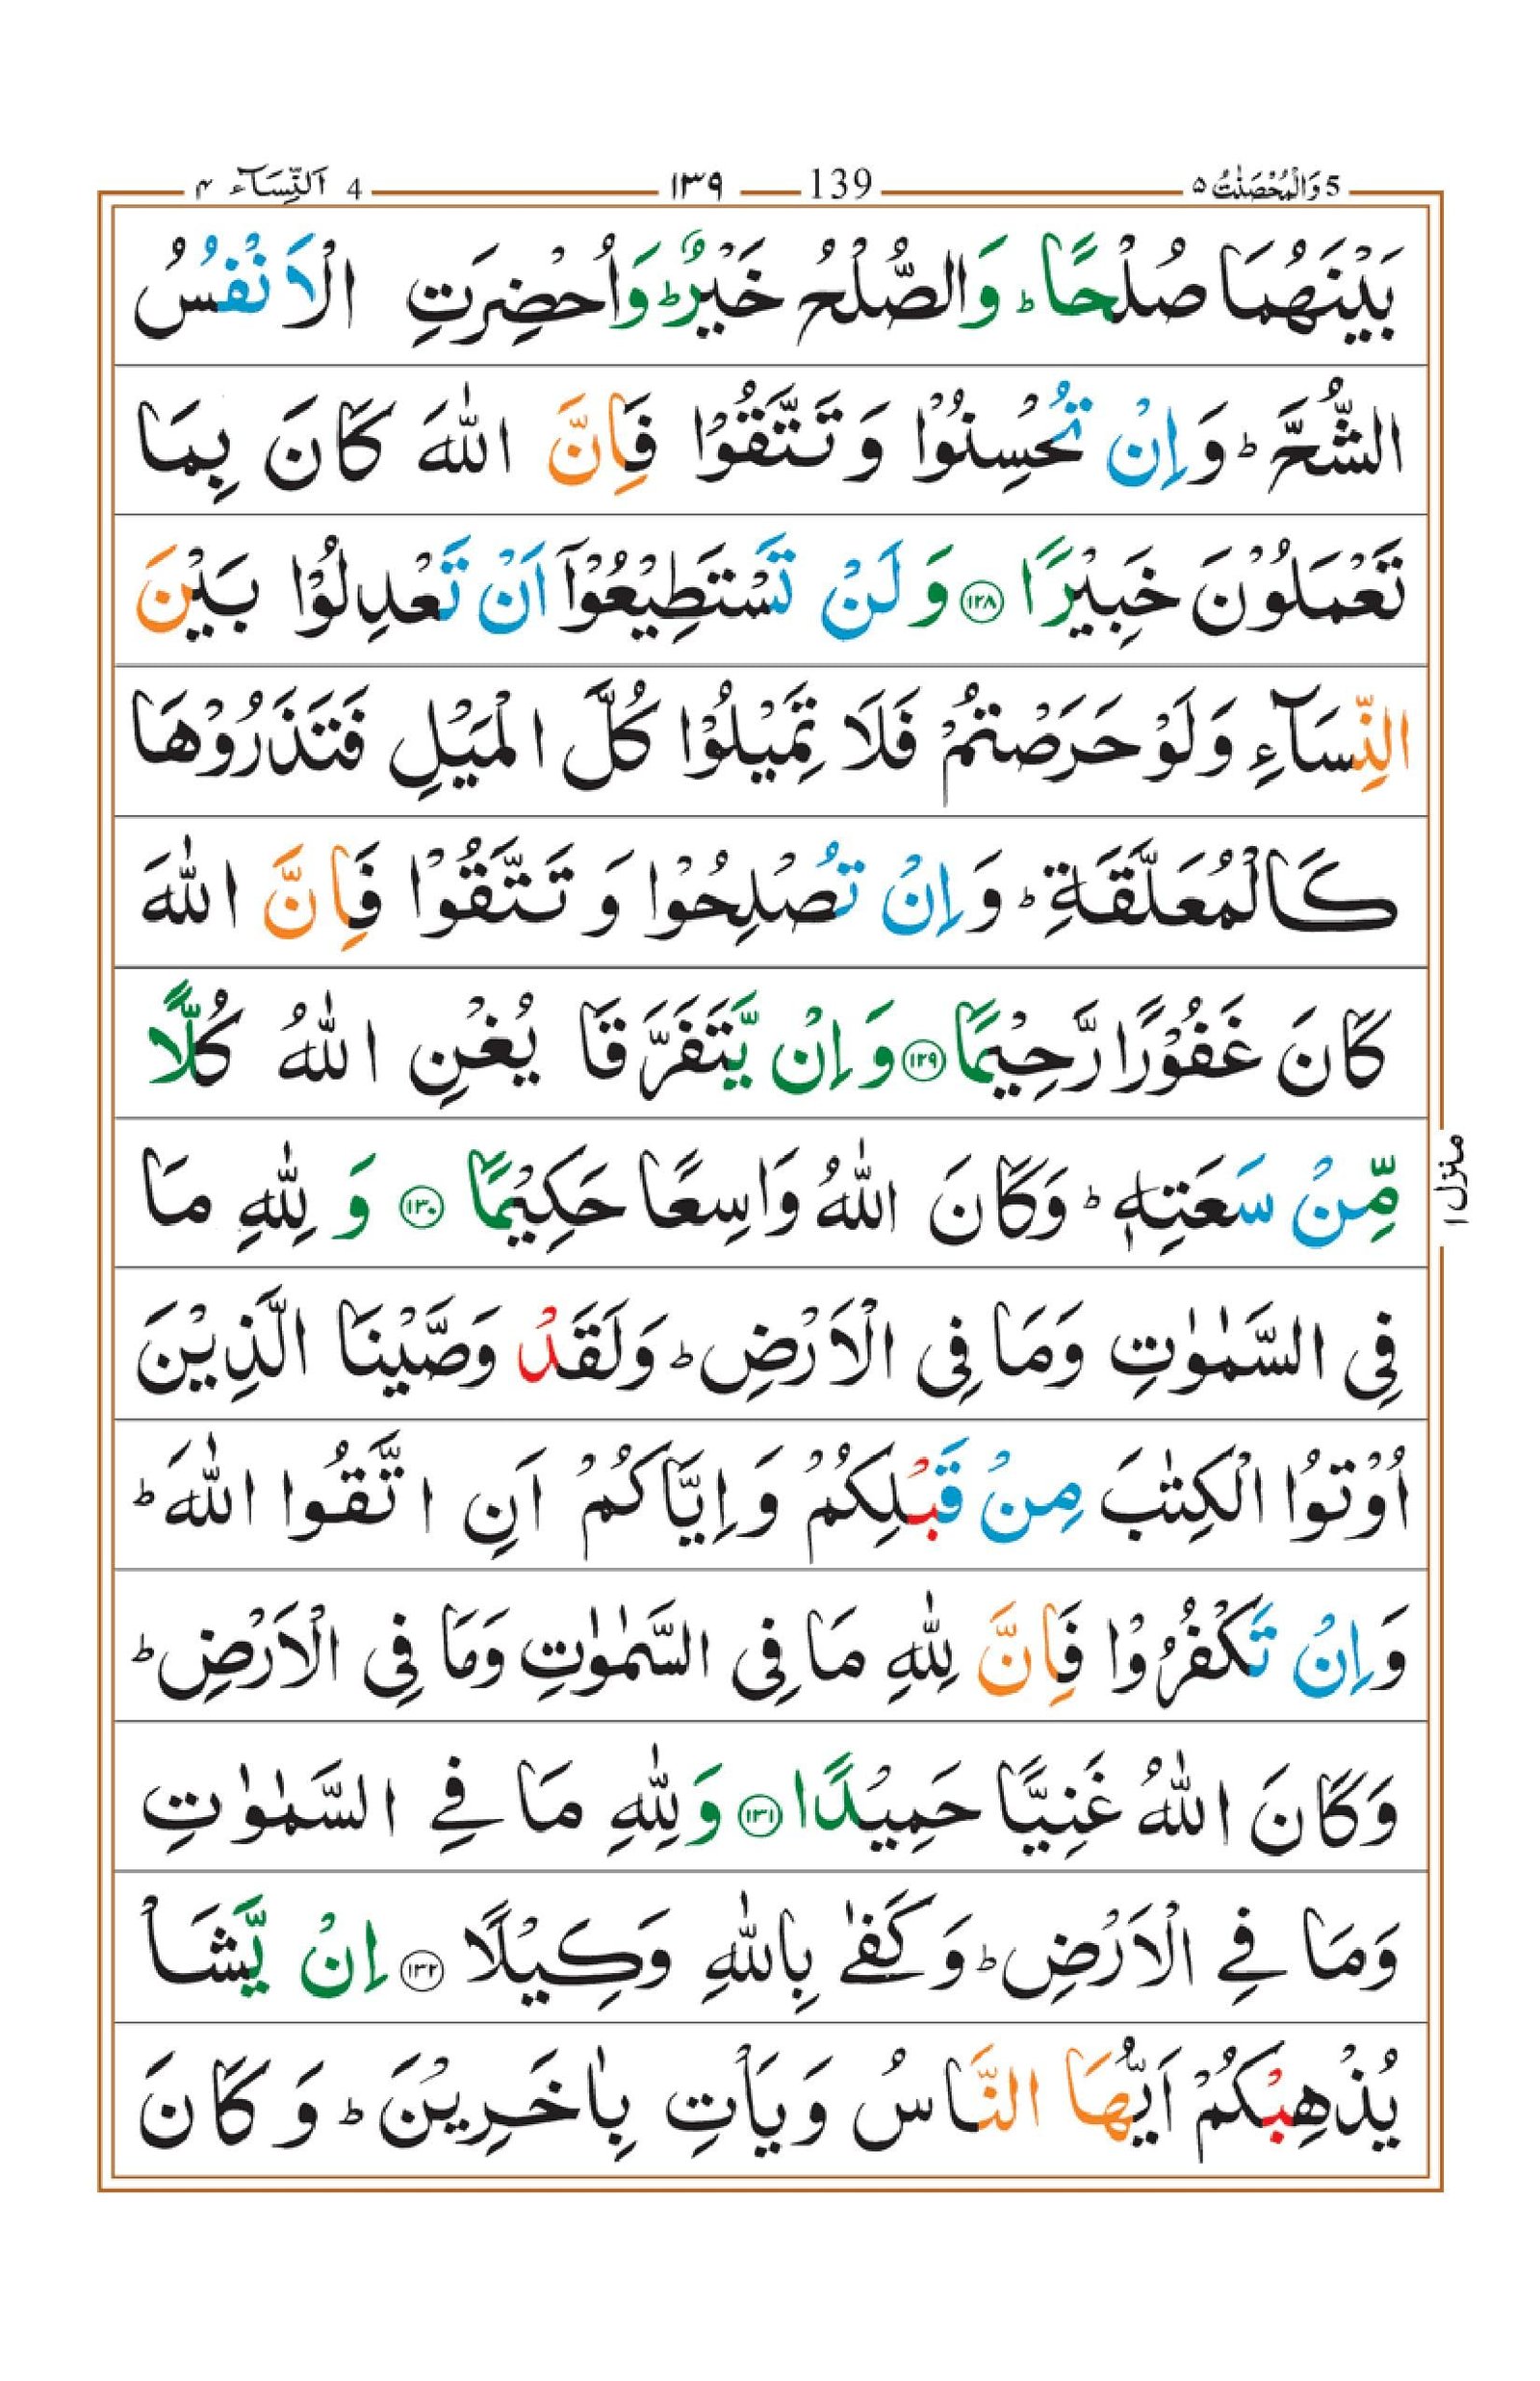 5 وَالْمُحْصَنٰتُ ۵ 139 ۱۳۹ 4 اَلنِّسَآء ۴
بَيْنَهُمَا صُلْحًا ؕ وَالصُّلْحُ خَيْرٌ ؕ وَاُحْضِرَتِ الْاَنْفُسُ
الشُّحَّ ؕ وَاِنْ تُحْسِنُوْا وَتَتَّقُوْا فَاِنَّ اللّٰهَ كَانَ بِمَا
تَعْمَلُوْنَ خَبِيْرًا ۱۲۸ وَلَنْ تَسْتَطِيْعُوْۤا اَنْ تَعْدِلُوْا بَيْنَ
النِّسَآءِ وَلَوْ حَرَصْتُمْ فَلَا تَمِيْلُوْا كُلَّ الْمَيْلِ فَتَذَرُوْهَا
كَالْمُعَلَّقَةِ ؕ وَاِنْ تُصْلِحُوْا وَتَتَّقُوْا فَاِنَّ اللّٰهَ
كَانَ غَفُوْرًا رَّحِيْمًا ۱۲۹ وَاِنْ يَّتَفَرَّقَا يُغْنِ اللّٰهُ كُلًّا
مِّنْ سَعَتِهٖ ؕ وَكَانَ اللّٰهُ وَاسِعًا حَكِيْمًا ۱۳۰ وَلِلّٰهِ مَا
فِى السَّمٰوٰتِ وَمَا فِى الْاَرْضِ ؕ وَلَقَدْ وَصَّيْنَا الَّذِيْنَ
اُوْتُوا الْكِتٰبَ مِنْ قَبْلِكُمْ وَاِيَّاكُمْ اَنِ اتَّقُوا اللّٰهَ ؕ
وَاِنْ تَكْفُرُوْا فَاِنَّ لِلّٰهِ مَا فِى السَّمٰوٰتِ وَمَا فِى الْاَرْضِ ؕ
وَكَانَ اللّٰهُ غَنِيًّا حَمِيْدًا ۱۳۱ وَلِلّٰهِ مَا فِے السَّمٰوٰتِ
وَمَا فِے الْاَرْضِ ؕ وَكَفٰے بِاللّٰهِ وَكِيْلًا ۱۳۲ اِنْ يَّشَاْ
يُذْهِبْكُمْ اَيُّهَا النَّاسُ وَيَاْتِ بِاٰخَرِيْنَ ؕ وَكَانَ
منزل ۱